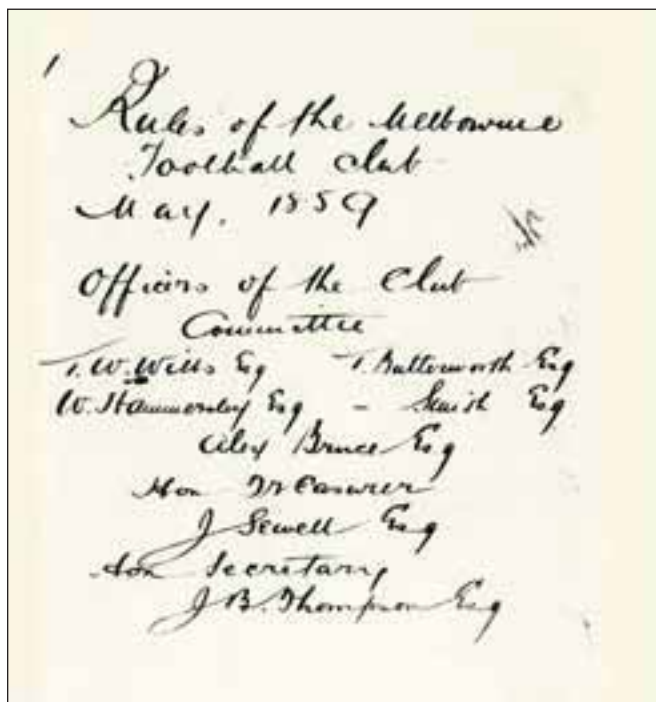 1
Rules of the Melbourne
Football Club
May. 1859
Officers of the Club
Committee
T. W. Wills Esq T. Butterworth Esq
W. Hammersley Esq – Smith Esq
Alex Bruce Esq
Hon Treasurer
J Sewell Esq
Hon Secretary
J B. Thompson Esq